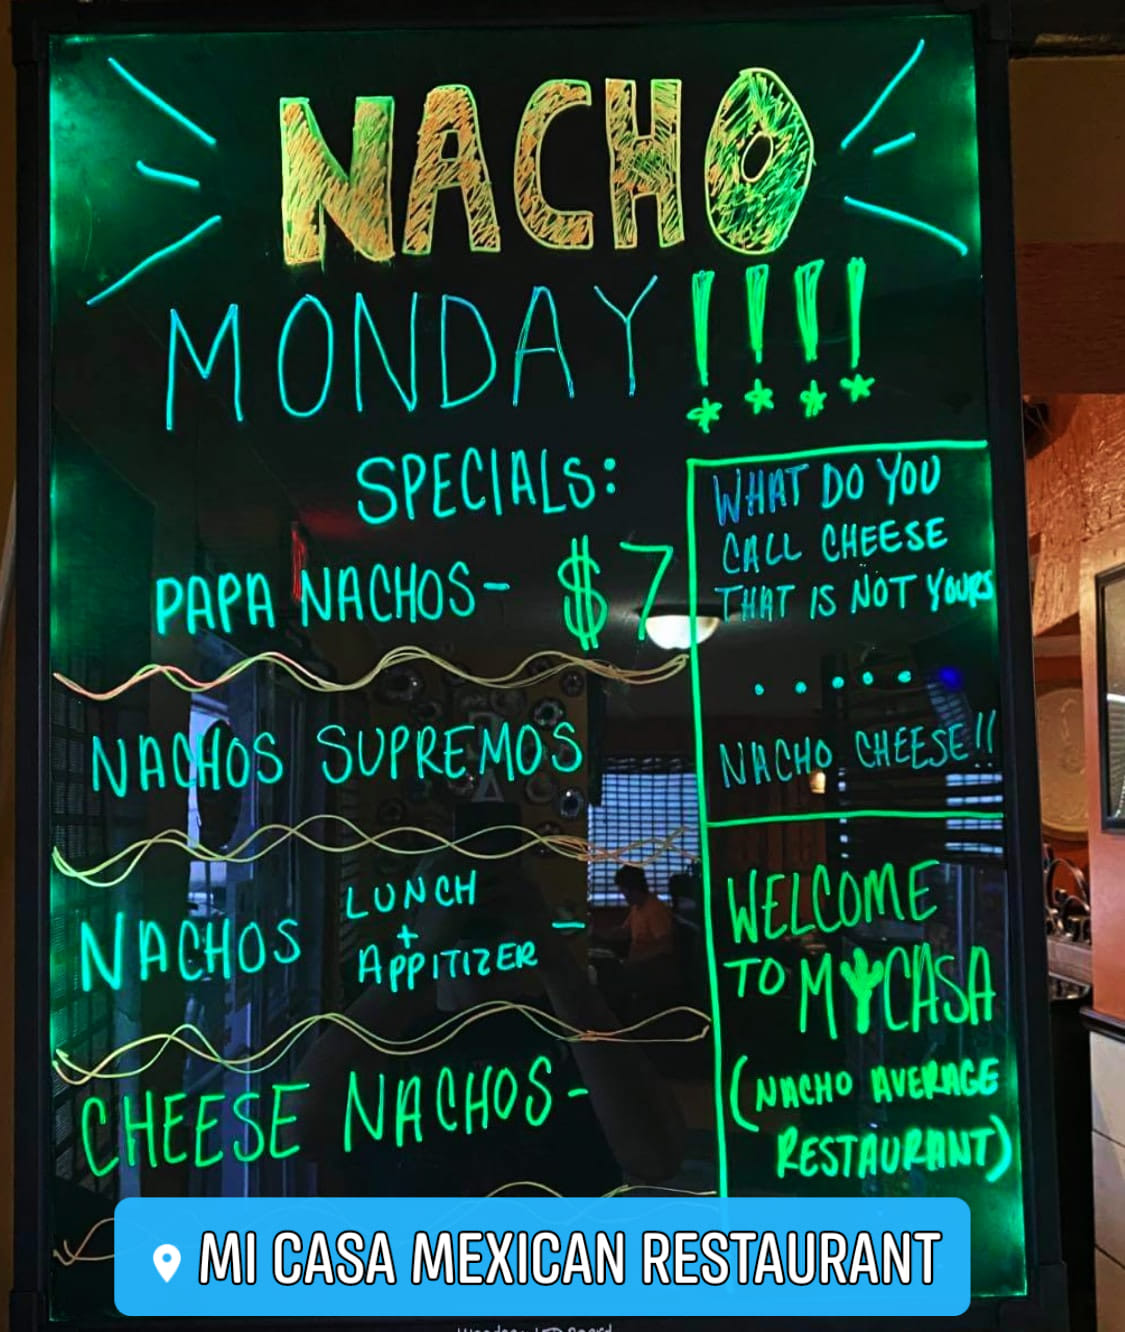 NACHO
MONDAY!!!!
SPECIALS:
PAPA NACHOS- $7
NACHOS SUPREMOS
NACHOS LUNCH + APPITIZER -
CHEESE NACHOS-
WHAT DO YOU
CALL CHEESE
THAT IS NOT YOURS
......
NACHO CHEESE!!
WELCOME
TO MY CASA
(NACHO AVERAGE
RESTAURANT)
MI CASA MEXICAN RESTAURANT